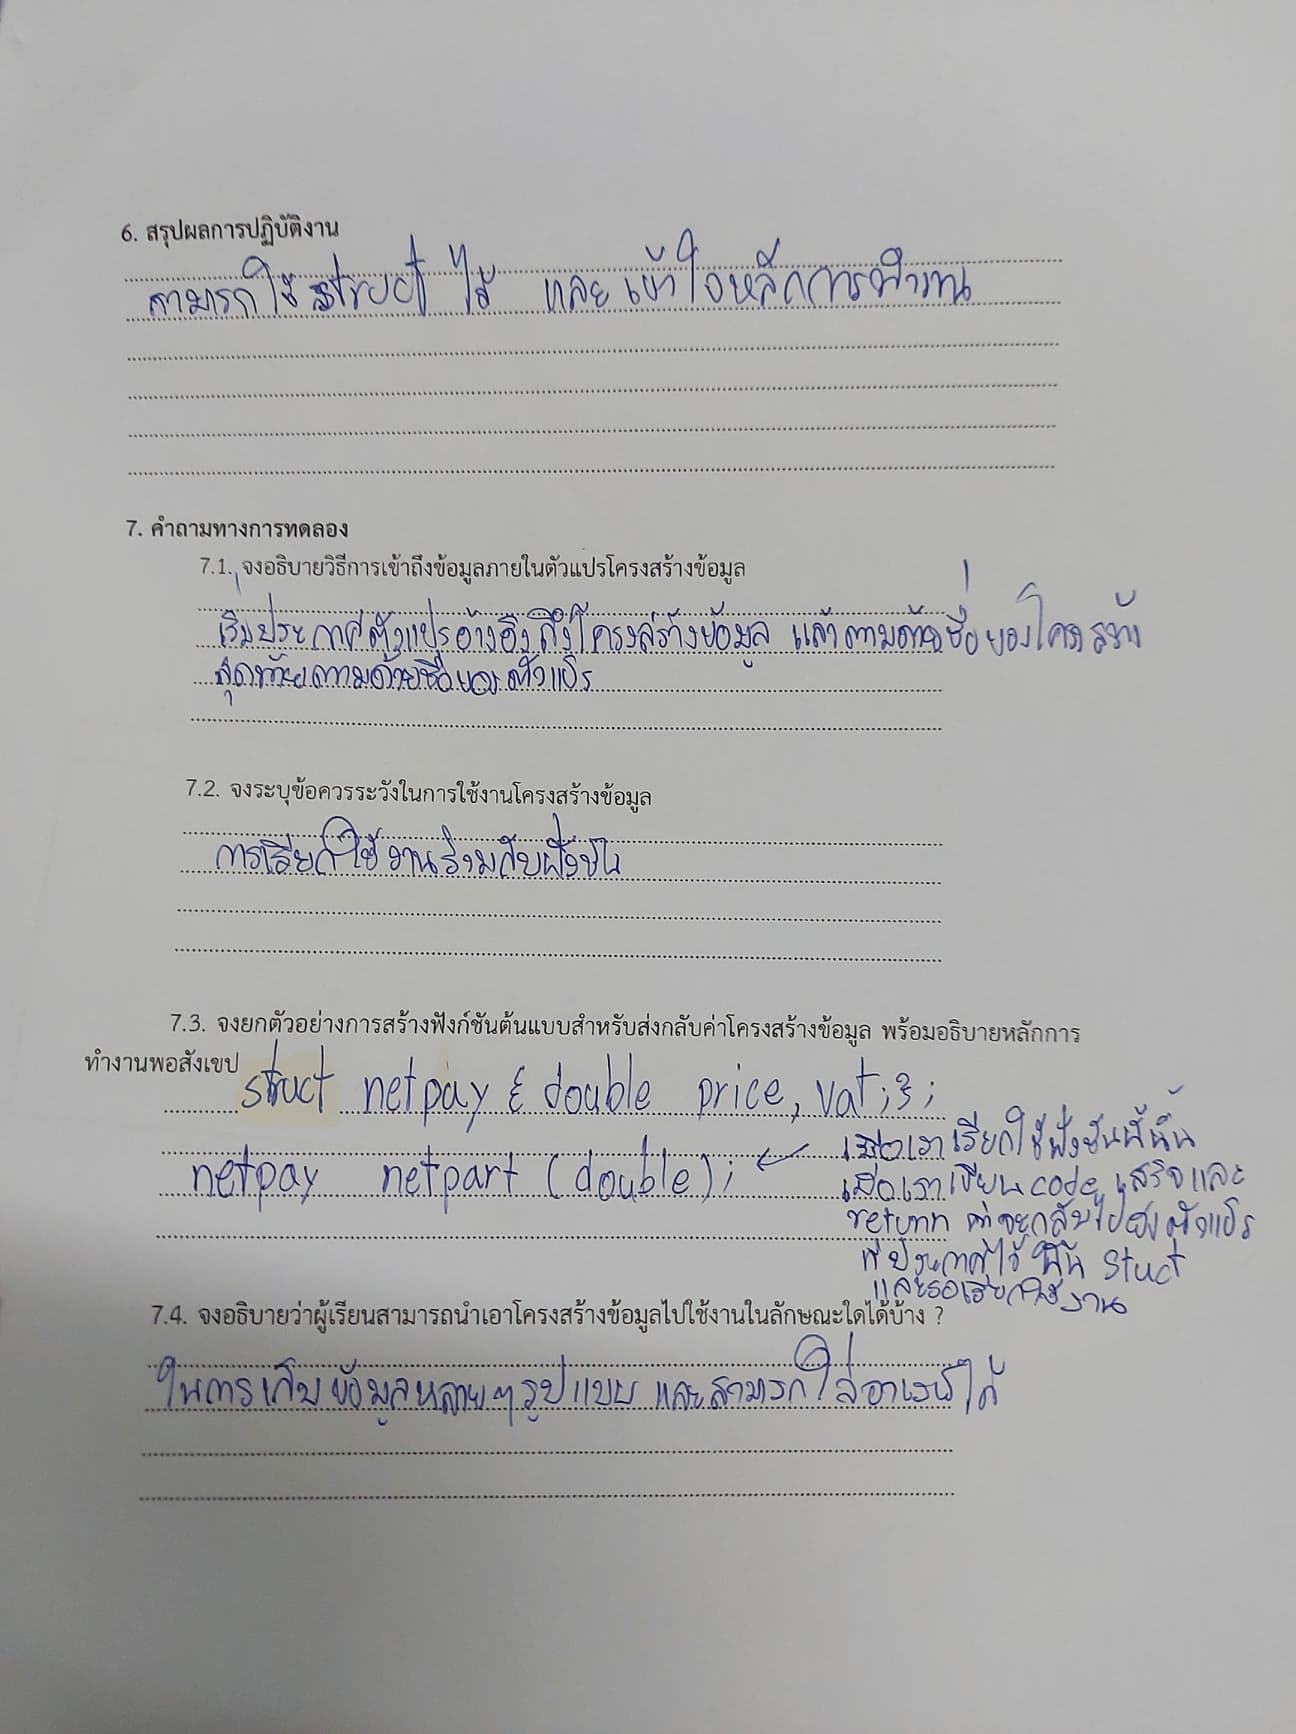 6. สรุปผลการปฏิบัติงาน
สามารถใช้ struct ได้ และเข้าใจหลักการทำงาน
7. คำถามทางการทดลอง
7.1. จงอธิบายวิธีการเข้าถึงข้อมูลภายในตัวแปรโครงสร้างข้อมูล
เริ่มประกาศตัวแปรอ้างอิงถึงโครงสร้างข้อมูล แล้วตามด้วยชื่อของโครงสร้าง
สุดท้ายตามด้วยชื่อของตัวแปร
7.2. จงระบุข้อควรระวังในการใช้งานโครงสร้างข้อมูล
การเรียกใช้งานร่วมกับฟังชัน
7.3. จงยกตัวอย่างการสร้างฟังก์ชันต้นแบบสำหรับส่งกลับค่าโครงสร้างข้อมูล พร้อมอธิบายหลักการ
ทำงานพอสังเขป
stuct netpay { double price, vat; };
netpay netpart (double);
เมื่อเราเรียกใช้ฟังชันนี้นั้น
เมื่อเราเขียน code เสร็จและ
return ค่าจะกลับไปยังตัวแปร
ที่ประกาศไว้ใน stuct
และรอเรียกใช้งาน
7.4. จงอธิบายว่าผู้เรียนสามารถนำเอาโครงสร้างข้อมูลไปใช้งานในลักษณะใดได้บ้าง ?
ในการเก็บข้อมูลหลายๆรูปแบบ และสามารถใส่อาเรย์ได้